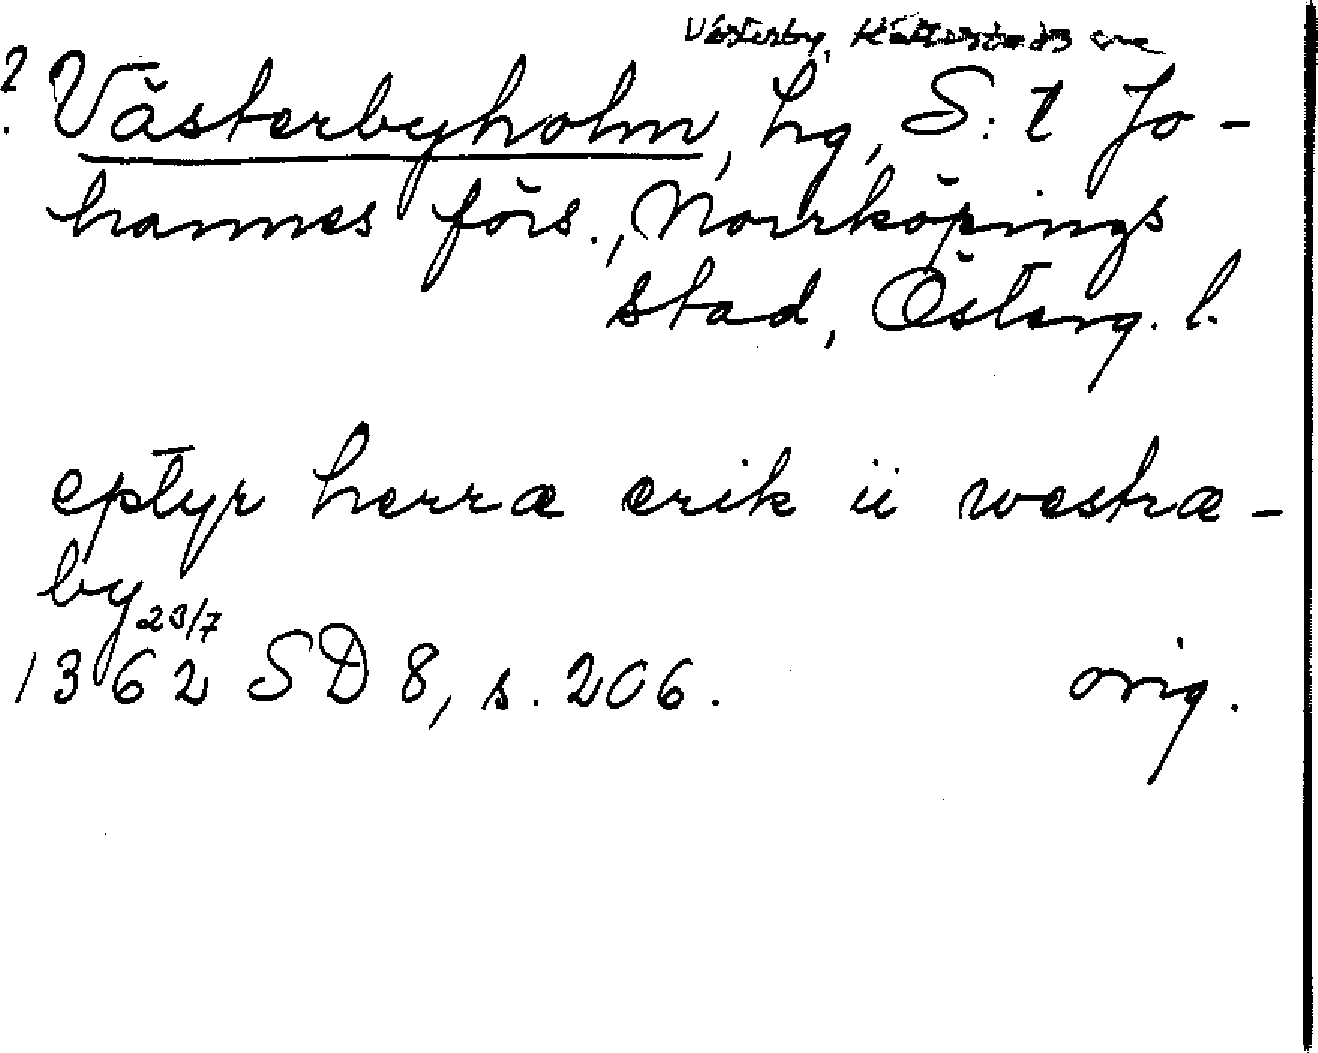 Västerby,
? Västerbyholm, hg, S:t Jo-
hannes förs., Norrköpings
stad, Österg. l.
eptyr herræ erik ii westræ-
by
23/7
1362 SD 8, s. 206. orig.